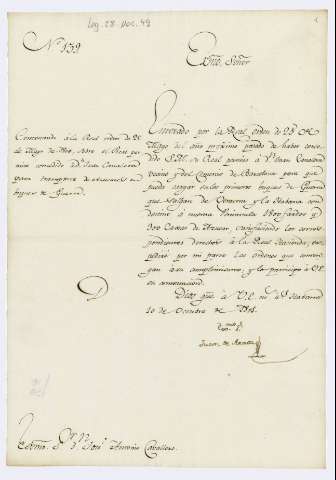 Leg. 28 Doc. 49
Nº 139
Exmo. Señor
Contextando à la Real orden de 25
de Mayo de 180, sobre el Real per-
miso concedido à Dn. Juan
para transporte de en
buques de Guerra.
Enterado por la Real orden de 25 de
Mayo del año próximo pasado de haber conce-
dido S.M. el Real permiso à Dn. Juan
Vecino y del Comercio de Barcelona para que
pueda cargar en los primeros buques de Guerra
que salgan de Veracruz y la Habana con
destino à nuestra Peninsula 1800 y
300 Caxas de Azucar, satisfaciendo los corres-
pondientes derechos à la Real Hacienda,
por mi parte las ordenes que conven-
gan à su cumplimiento, y lo participo à V.E.
en contextacion.
Dios gue. à V.E. ms. as. Habana
10 de Octubre de
Exmo. Sr.
Juan de Araoz
Exmo. Sr. Dn. José Antonio Caballero.